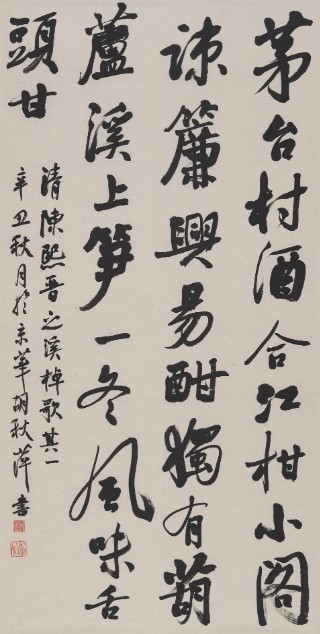 茅台村酒合江柑小阁
疎簾興易酣獨有葫
蘆溪上笋一冬風味舌
頭甘
清陳熙晋之溪棹歌其一
辛丑秋月於京華胡秋萍書